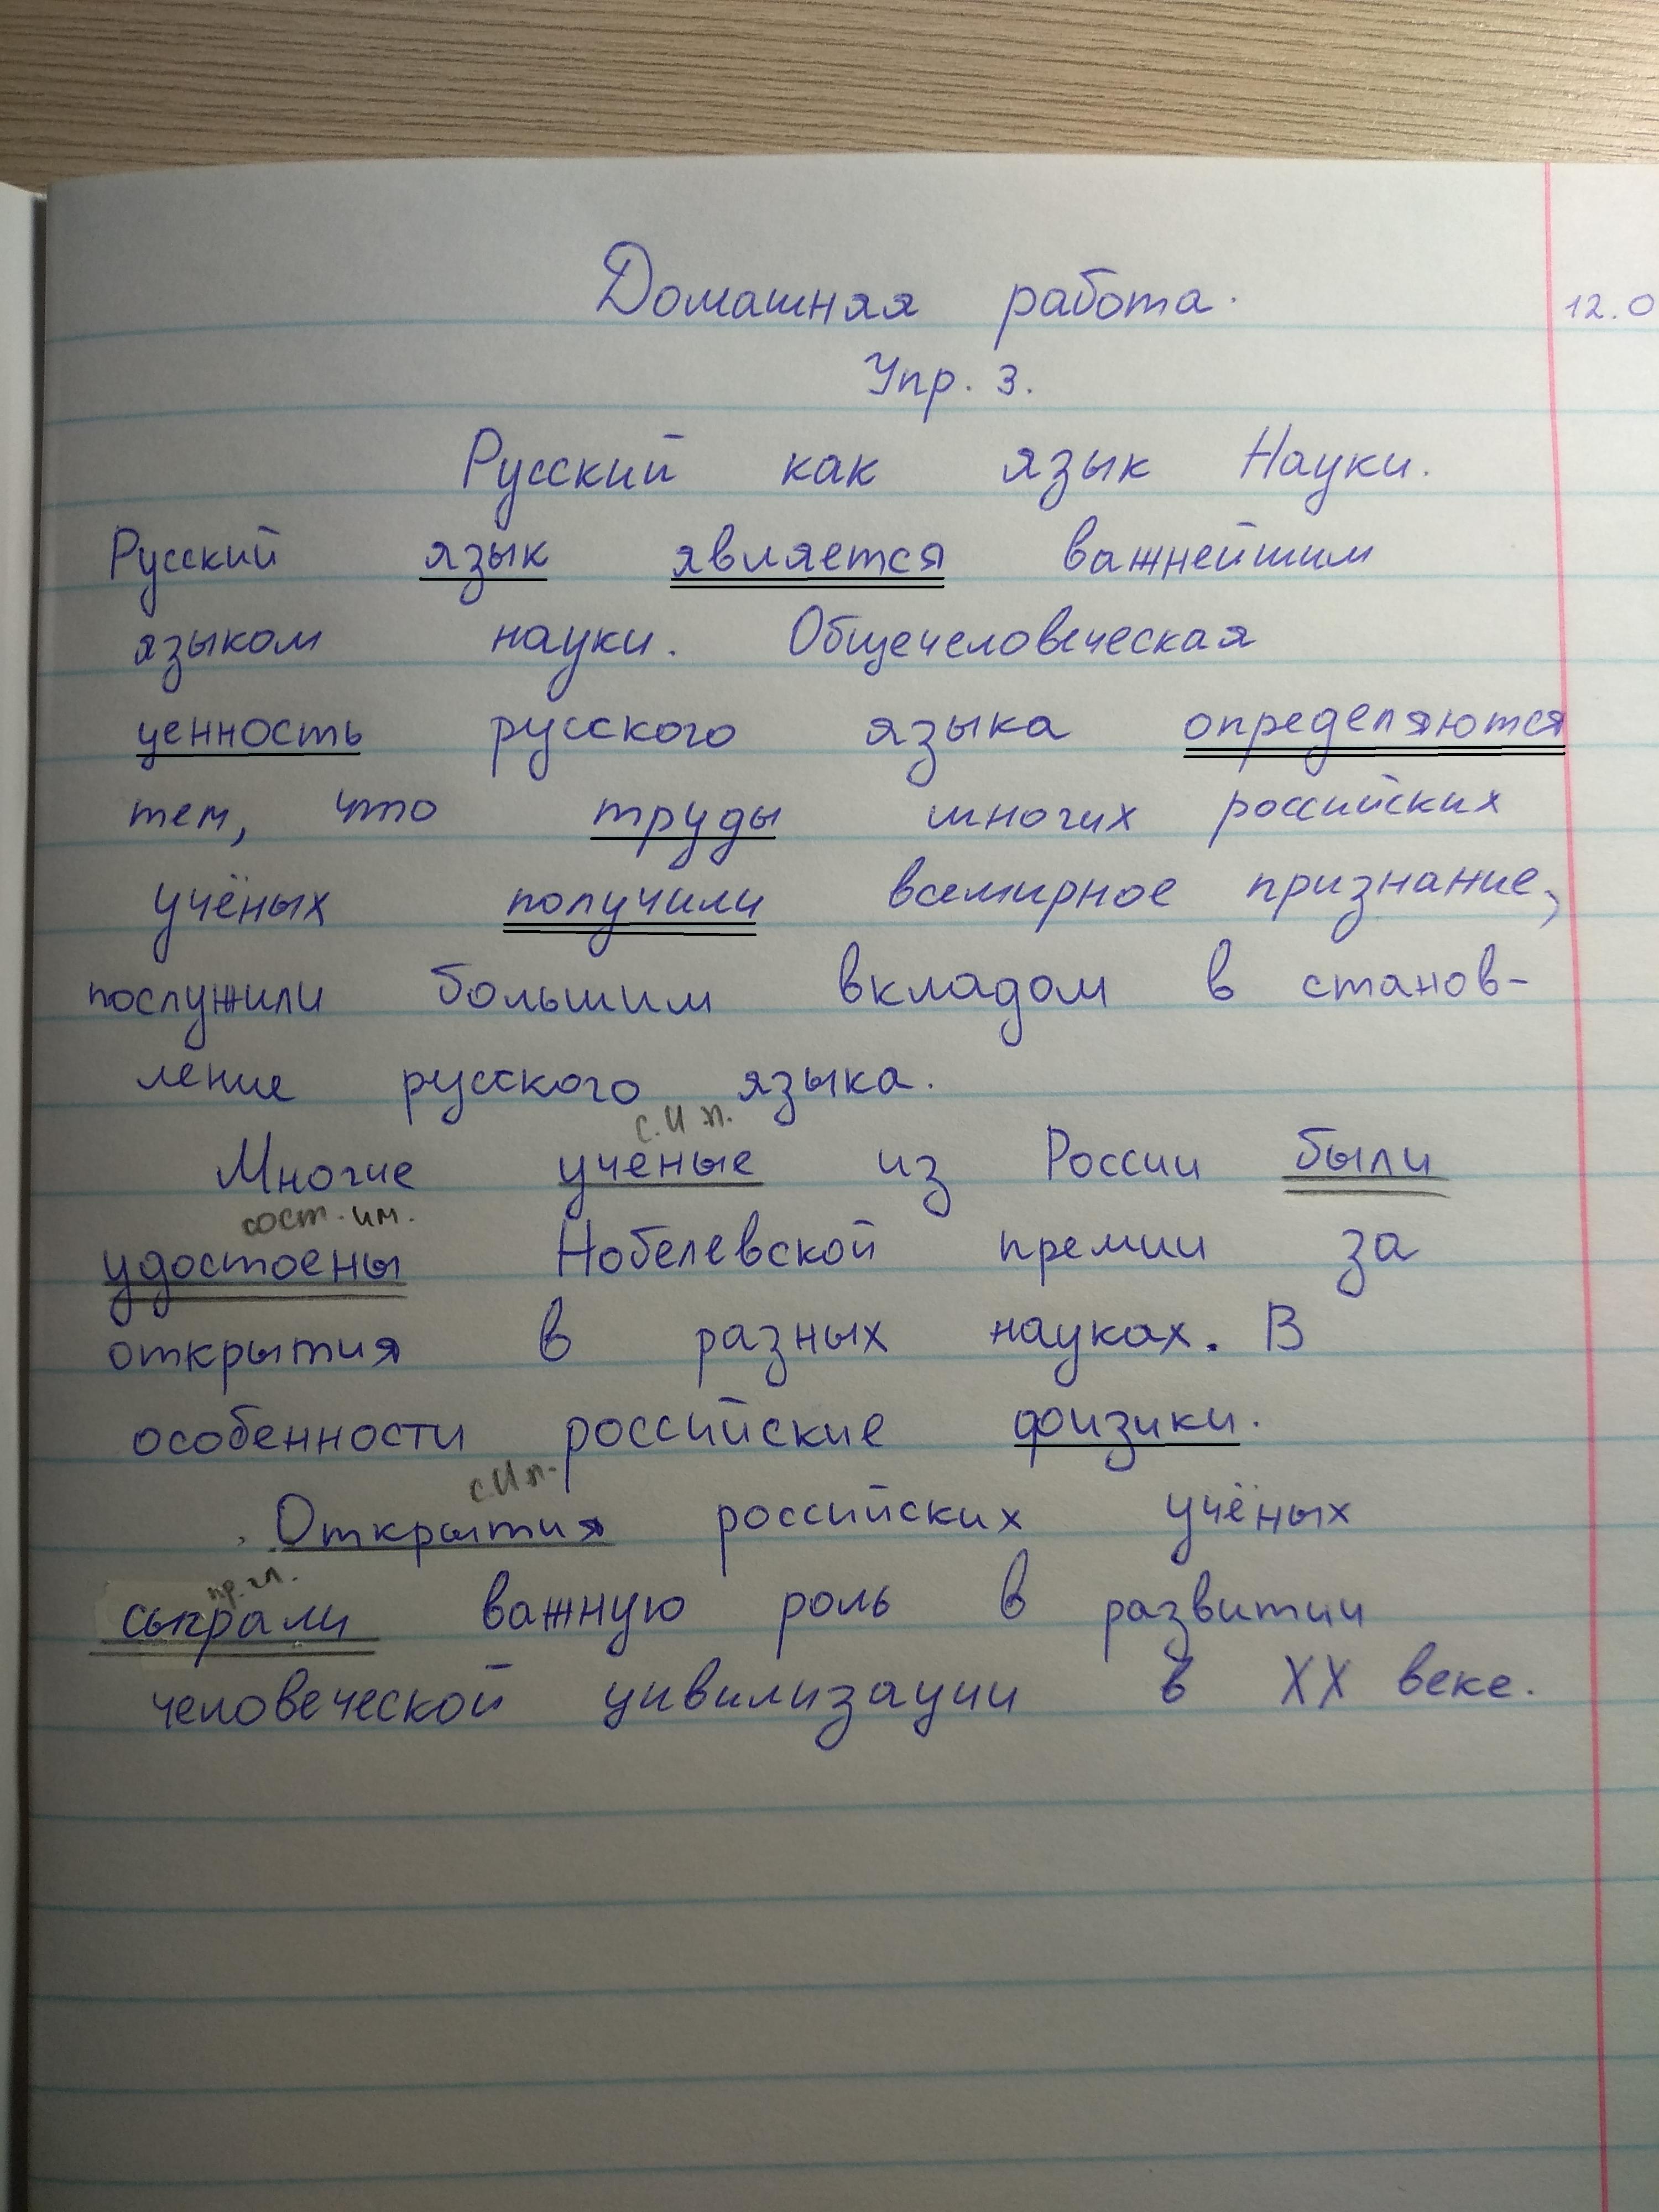 Домашняя работа.
12.0
Упр. 3.
Русский как язык Науки.
Русский язык является важнейшим
языком науки. Общечеловеческая
ценность русского языка определяются
тем, что труды многих российских
учёных получили всемирное признание,
послужили большим вкладом в станов-
ление русского языка.
с. И п.
Многие ученые из России были
сост. им.
удостоены Нобелевской премии за
открытия в разных науках. В
особенности российские физики.
с И п.
Открытия российских учёных
пр. гл.
сыграли важную роль в развитии
человеческой цивилизации в XX веке.